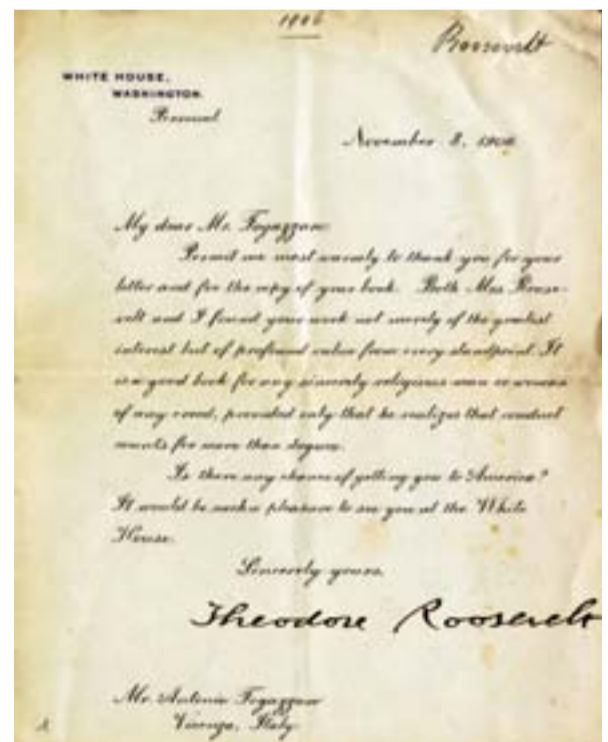 1906
Roosevelt
WHITE HOUSE,
WASHINGTON.
Personal
November 8, 1906
My dear Mr. Fogazzaro:
Permit me most warmly to thank you for your
letter and for the copy of your book. Both Mrs. Roose-
velt and I found your work not merely of the greatest
interest but of profound value from every standpoint. It
is a good book for any sincerely religious man or woman
of any creed, provided only that he realizes that conduct
counts for more than dogma.
Is there any chance of getting you to America?
It would be such a pleasure to see you at the White
House.
Sincerely yours,
Theodore Roosevelt
Mr. Antonio Fogazzaro
Vicenza, Italy